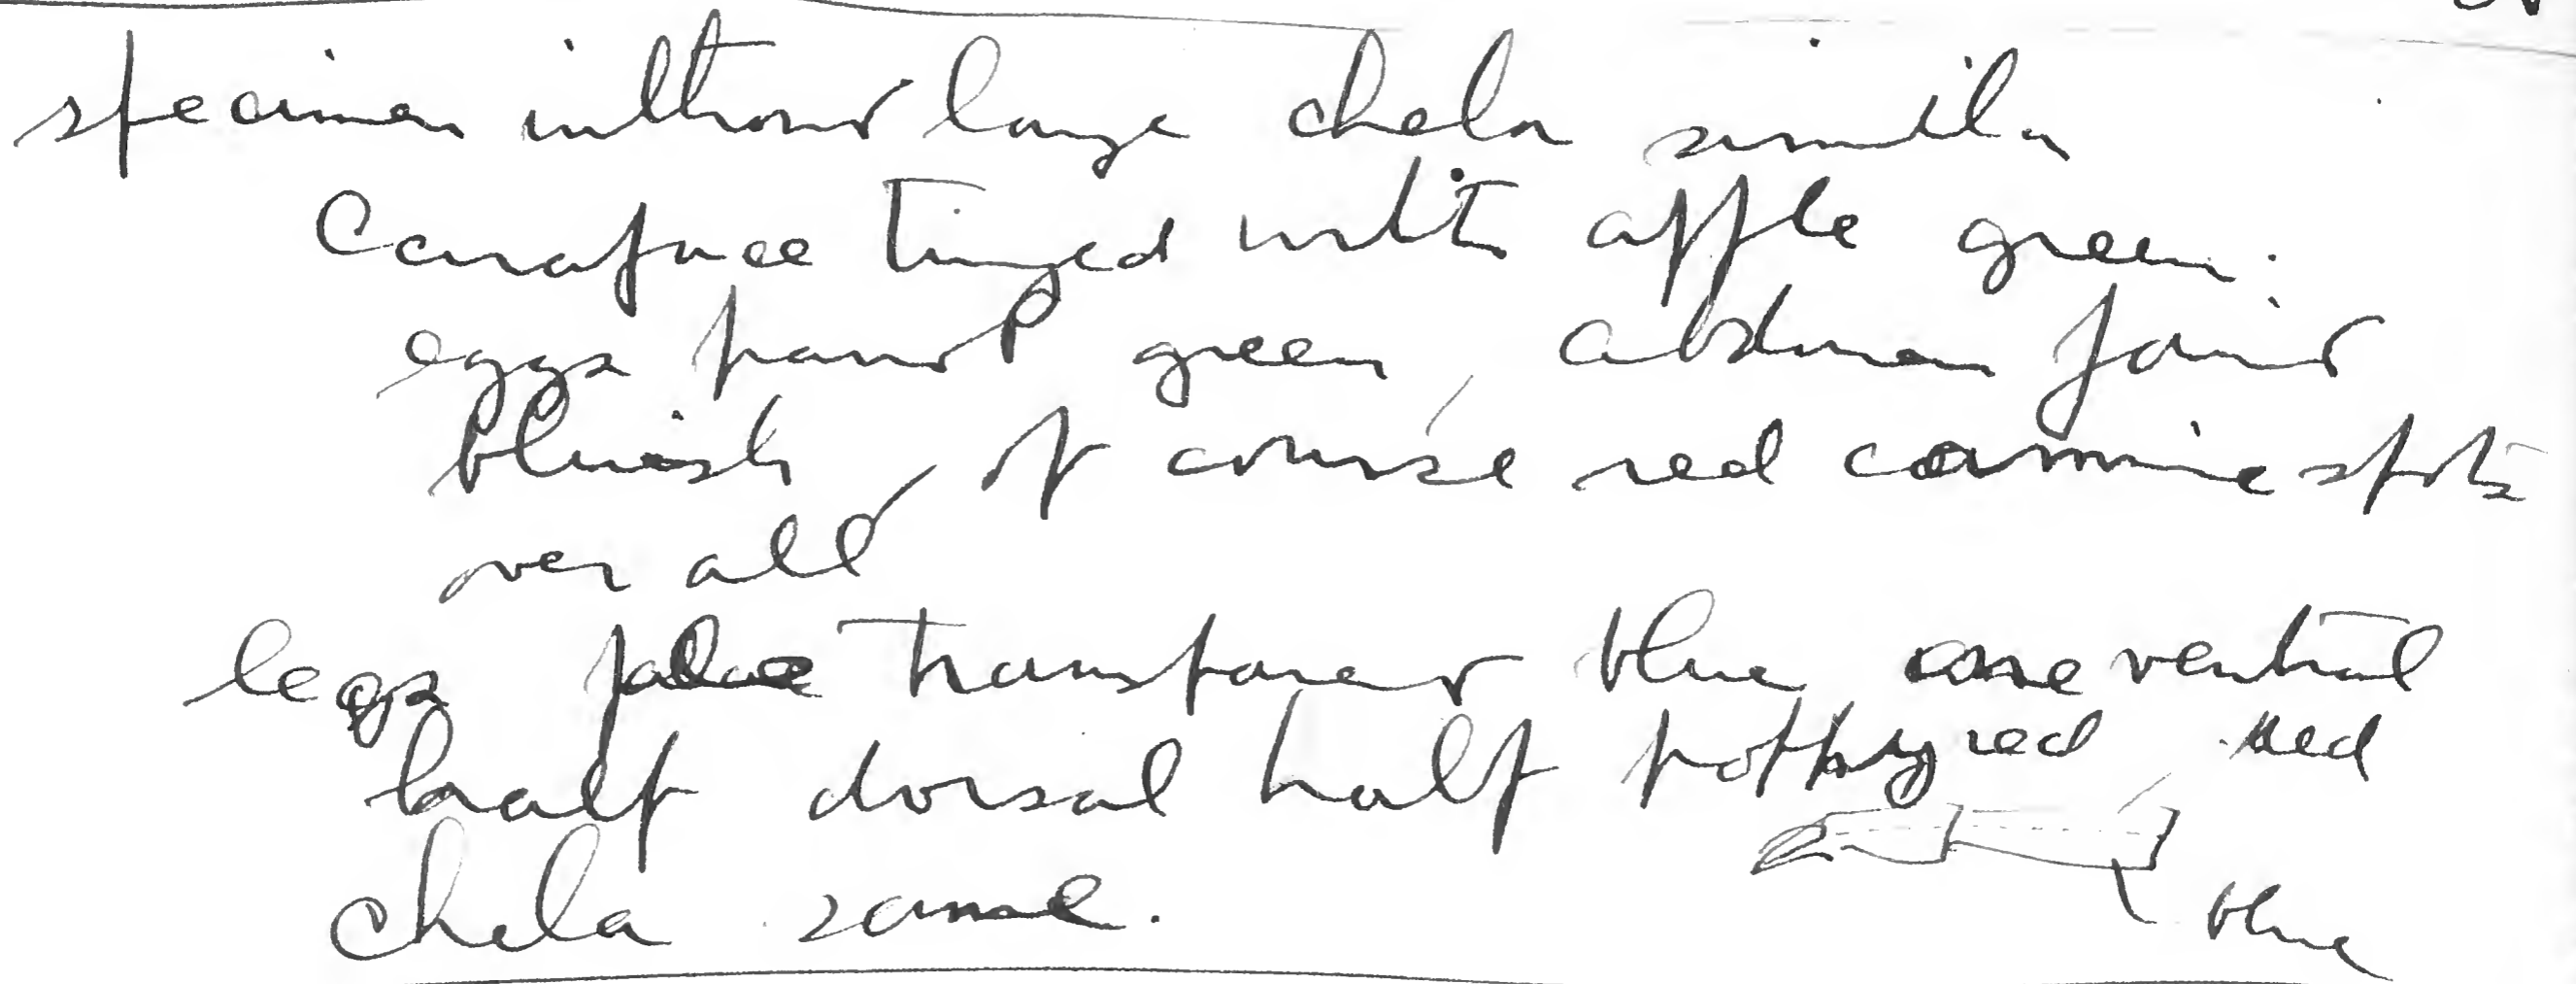 specimen without large chela similar
Carapace tinged with apple green.
eggs parrot green, abdomen faint
bluish, of course red carmine spots
over all
legs pale transparent blue, one ventral
half dorsal half red, red
chela same.
blue